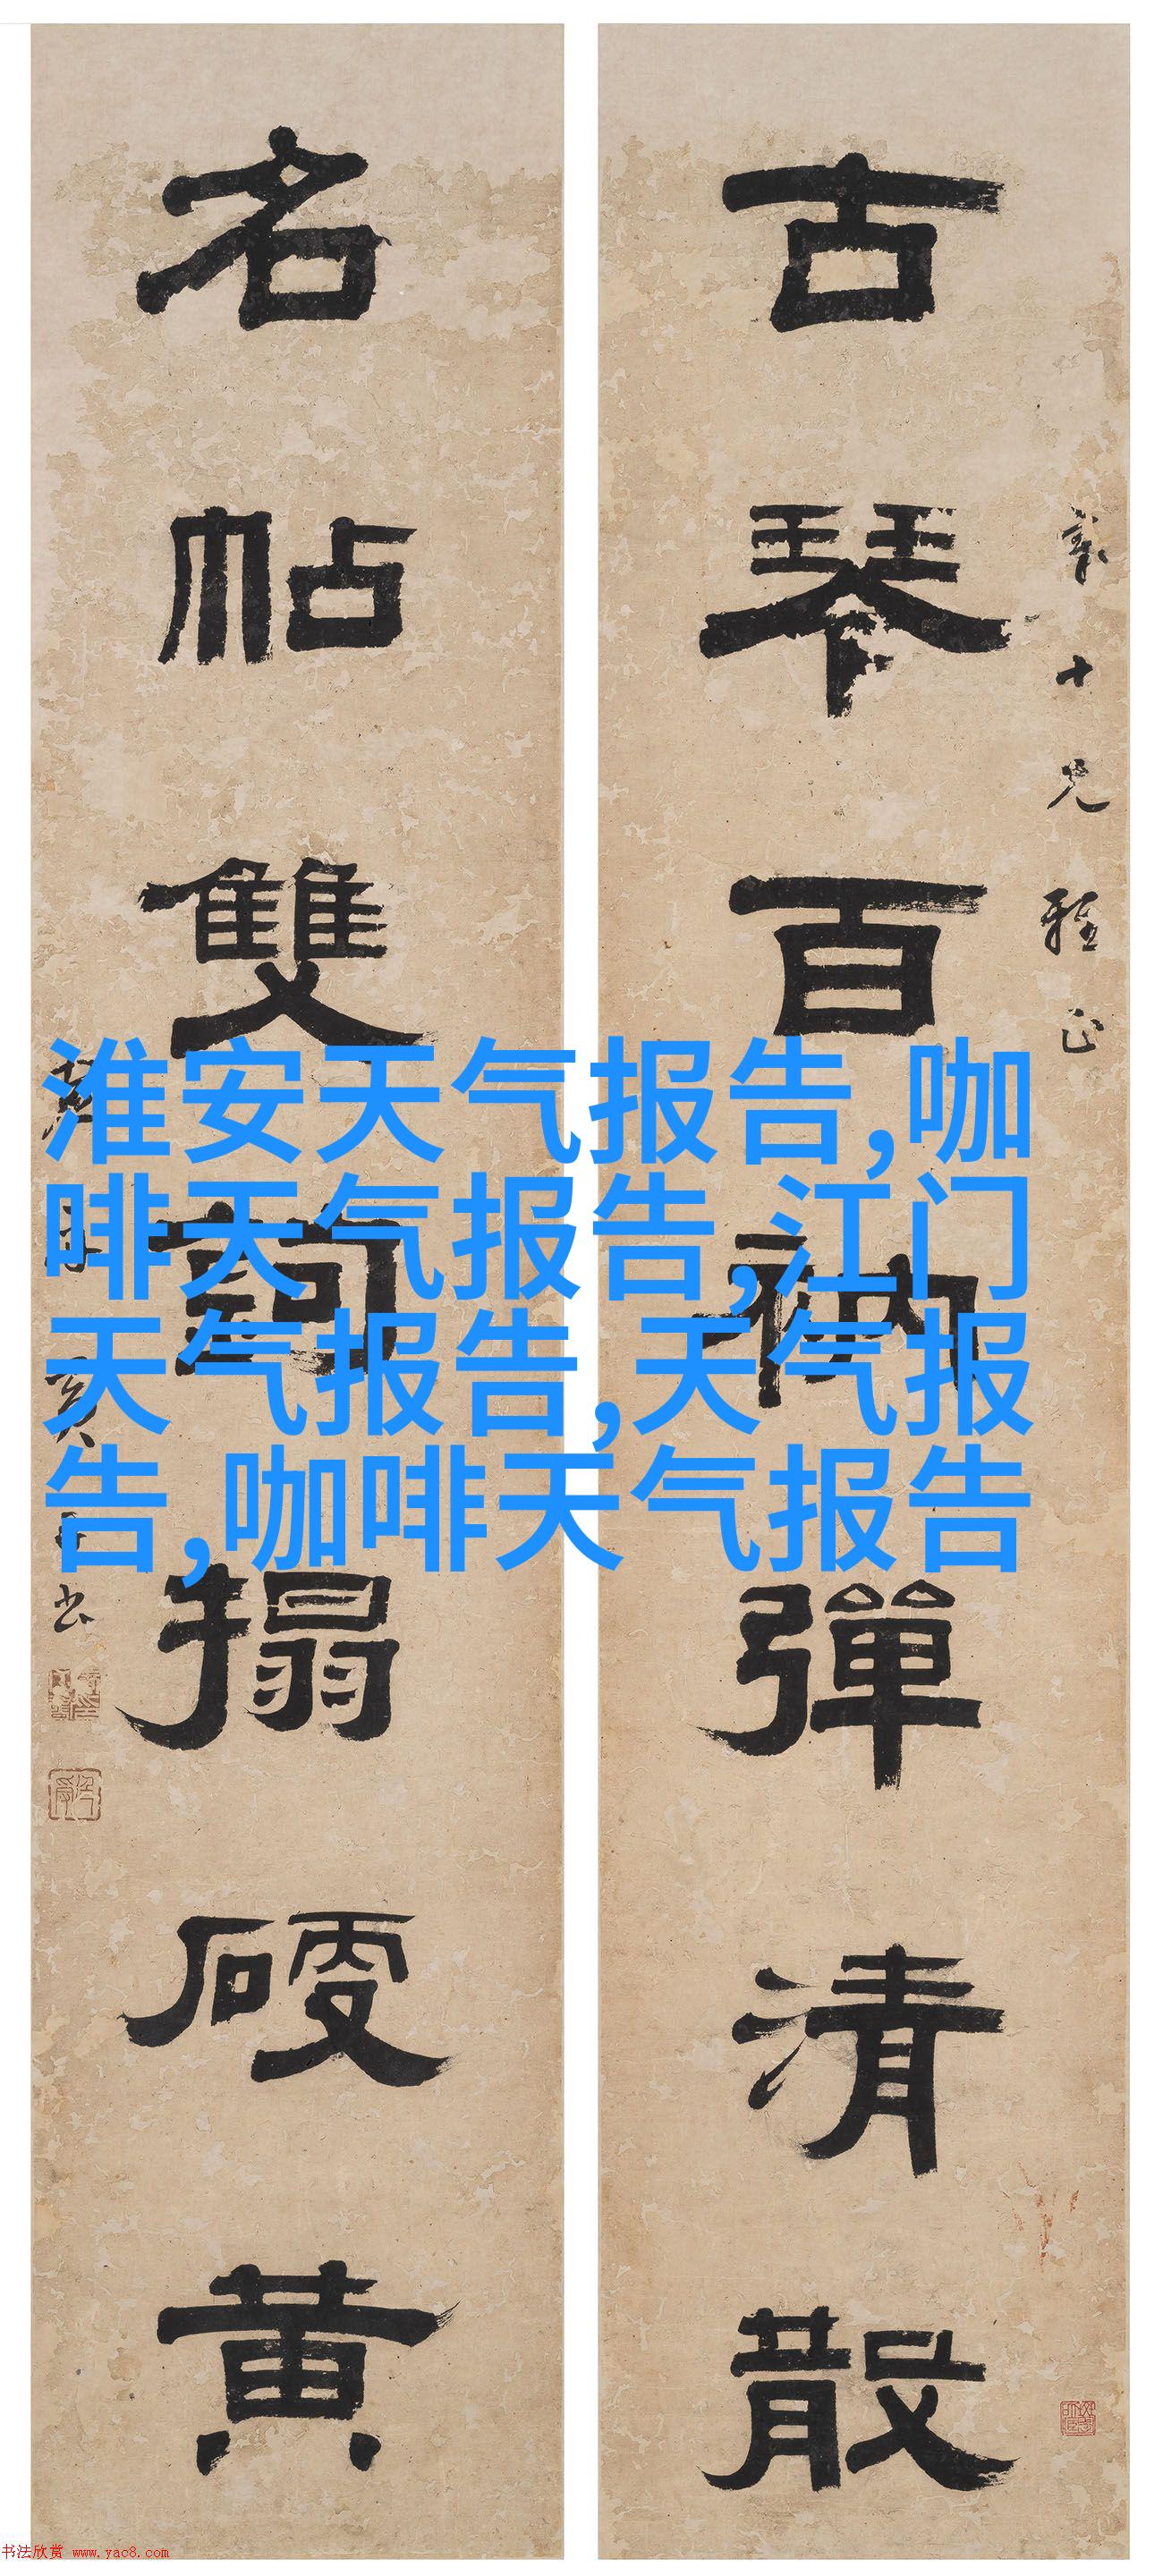 古琴百衲彈清散
名帖雙鉤搨硬黄
十兄雅正
書
淮安天气报告,咖
啡天气报告,江门
天气报告,天气报
告,咖啡天气报告
书法欣赏 www.yac8.com